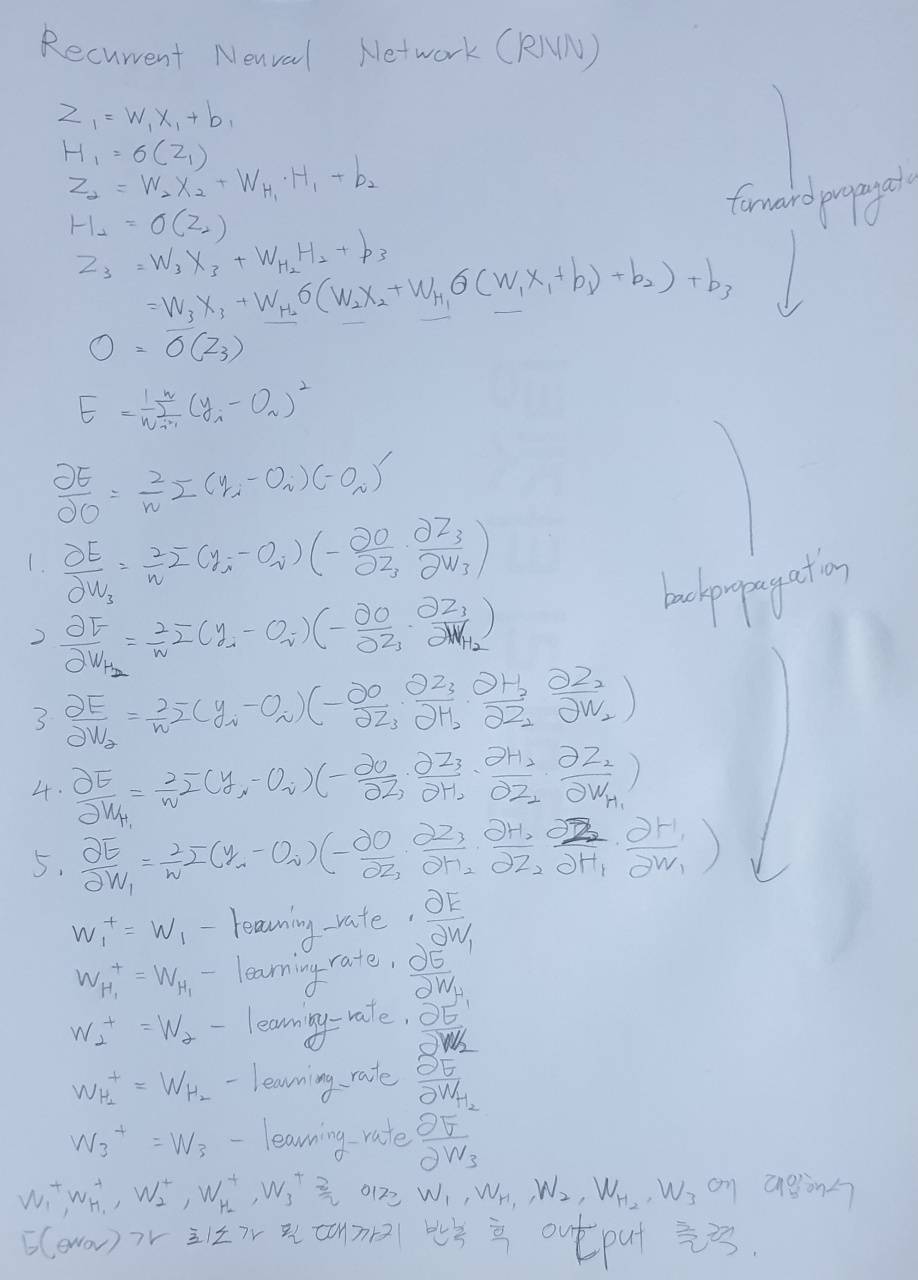 Recurrent Neural Network (RNN)
Z₁ = W₁X₁ + b₁
H₁ = σ(Z₁)
Z₂ = W₂X₂ + W_H₁·H₁ + b₂
H₂ = σ(Z₂)
Z₃ = W₃X₃ + W_H₂H₂ + b₃
= W₃X₃ + W_H₂σ(W₂X₂ + W_H₁σ(W₁X₁ + b₁) + b₂) + b₃
O = σ(Z₃)
forward propagati
E = 1/n Σⁿᵢ₌₁ (yᵢ - Oᵢ)²
∂E/∂O = 2/n Σ(yᵢ - Oᵢ)(-Oᵢ)′
1. ∂E/∂W₃ = 2/n Σ(yᵢ - Oᵢ)(-∂O/∂Z₃ · ∂Z₃/∂W₃)
2 ∂E/∂W_H₂ = 2/n Σ(yᵢ - Oᵢ)(-∂O/∂Z₃ · ∂Z₃/∂W_H₂)
3 ∂E/∂W₂ = 2/n Σ(yᵢ - Oᵢ)(-∂O/∂Z₃ · ∂Z₃/∂H₂ · ∂H₂/∂Z₂ · ∂Z₂/∂W₂)
4. ∂E/∂W_H₁ = 2/n Σ(yᵢ - Oᵢ)(-∂O/∂Z₃ · ∂Z₃/∂H₂ · ∂H₂/∂Z₂ · ∂Z₂/∂W_H₁)
5. ∂E/∂W₁ = 2/n Σ(yᵢ - Oᵢ)(-∂O/∂Z₃ · ∂Z₃/∂H₂ · ∂H₂/∂Z₂ · ∂Z₂/∂H₁ · ∂H₁/∂W₁)
backpropagation
W₁⁺ = W₁ - learning_rate · ∂E/∂W₁
W_H₁⁺ = W_H₁ - learning_rate · ∂E/∂W_H₁
W₂⁺ = W₂ - learning_rate · ∂E/∂W₂
W_H₂⁺ = W_H₂ - learning_rate ∂E/∂W_H₂
W₃⁺ = W₃ - learning_rate ∂E/∂W₃
W₁⁺, W_H₁⁺, W₂⁺, W_H₂⁺, W₃⁺ 를 이전 W₁, W_H₁, W₂, W_H₂, W₃ 에 대입해서
E(error)가 최소가 될 때까지 반복 후 output 출력.